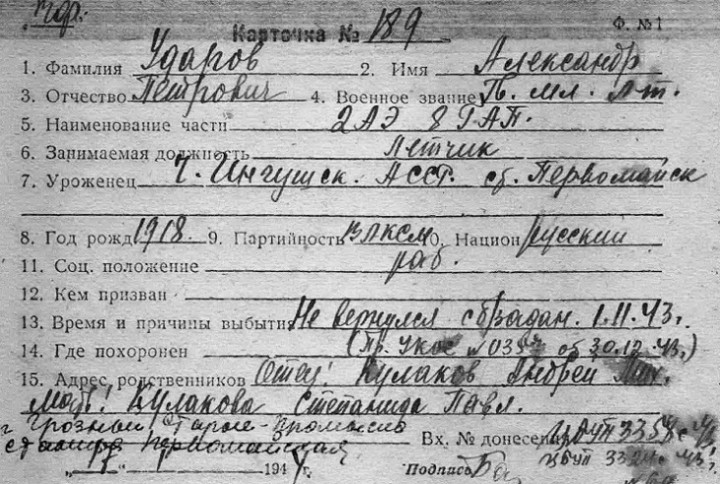 Карточка № 189 Ф. №1
1. Фамилия Ударов 2. Имя Александр
3. Отчество Петрович 4. Военное звание Гв. мл. л-т.
5. Наименование части 2АЭ 8 ГАП.
6. Занимаемая должность Летчик
7. Уроженец Ч. Ингушск. АССР. ст. Первомайск
8. Год рожд 1918. 9. Партийность ВЛКСМ 0. Национ русский
11. Соц. положение раб.
12. Кем призван
13. Время и причины выбытия Не вернулся с б/задан. 1.11.43г.
14. Где похоронен (Пр. УКОС №035 от 30.12.43.)
15. Адрес родственников Отец: Кулаков Андрей Мих.
Мать: Кулакова Степанида Павл.
г. Грозный Старые-Промысла
станица Первомайская Вх. № донесения
194 г. Подпись